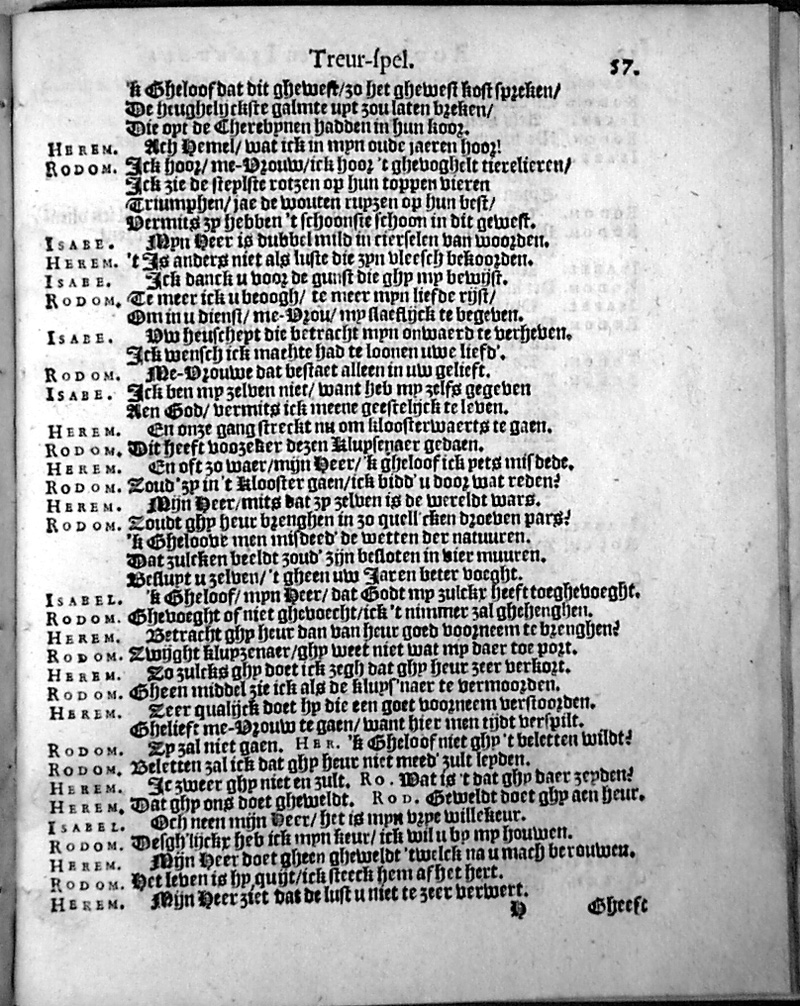 Treur-spel. 57.
'k Gheloof dat dit ghewest/zo het ghewest kost spreken/
De heughelijckste galmte uyt zou laten breken/
Die oyt de Cherebynen hadden in hun koor.
HEREM. Ach Hemel/ wat ick in myn oude jaeren hoor!
RODOM. Ick hoor/ me-Vrouw/ick hoor 't ghevoghelt tierelieren/
Ick zie de steylste rotzen op hun toppen vieren
Triumphen/ jae de wouten ruyzen op hun best/
Vermits zy hebben 't schoonste schoon in dit gewest.
ISABE. Myn Heer is dubbel mild in cierselen van woorden.
HEREM. 't Is anders niet als luste die zyn vleesch bekoorden.
ISABE. Ick danck u voor de gunst die ghy my bewijst.
RODOM. Te meer ick u beoogh/ te meer myn liefde rijst/
Om in u dienst/ me-Vrou/ my slaeflijck te begeven.
ISABE. Uw heuscheyt die betracht myn onwaerd te verheven.
Ick wensch ick machte had te loonen uwe liefd'.
RODOM. Me-Vrouwe dat bestaet alleen in uw gelieft.
ISABE. Ick ben my zelven niet/ want heb my zelfs gegeven
Aen God/ vermits ick meene geestelijck te leven.
HEREM. En onze gang streckt nu om kloosterwaerts te gaen.
RODOM. Dit heeft voozeker dezen Kluysenaer gedaen.
HEREM. En oft zo waer/mijn Heer/ 'k gheloof ick yets misdede.
RODOM. Zoud' zy in 't Klooster gaen/ick bidd' u door wat reden?
HEREM. Mijn Heer/mits dat zy zelven is de wereldt wars.
RODOM. Zoudt ghy heur brenghen in zo quell'cken droeven pars?
'k Gheloove men misdeed' de wetten der natuuren.
Dat zulcken beeldt zoud' zijn besloten in vier muuren.
Besluyt u zelven/ 't gheen uw Jaren beter voeght.
ISABEL. 'k Gheloof/ myn Heer/ dat Godt my zulckx heeft toeghevoeght.
RODOM. Ghevoeght of niet ghevoecht/ick 't nimmer zal ghehenghen.
HEREM. Betracht ghy heur dan van heur goed voorneem te brenghen?
RODOM. Zwijght kluyzenaer/ghy weet niet wat my daer toe port.
HEREM. Zo zulcks ghy doet ick zegh dat ghy heur zeer verkort.
RODOM. Gheen middel zie ick als de kluys'naer te vermoorden.
HEREM. Zeer qualijck doet hy die een goet voorneem verstoorden.
Ghelieft me-Vrouw te gaen/ want hier men tijdt verspilt.
RODOM. Zy zal niet gaen. HER. 'k Gheloof niet ghy 't beletten wildt?
RODOM. Beletten zal ick dat ghy heur niet meed' zult leyden.
HEREM. Ic zweer ghy niet en zult. RO. Wat is 't dat ghy daer zeyden?
HEREM. Dat ghy ons doet gheweldt. ROD. Geweldt doet ghy aen heur.
ISABEL. Och neen mijn Heer/ het is myn vrye willekeur.
RODOM. Desgh'lijckx heb ick myn keur/ ick wil u by my houwen.
HEREM. Mijn Heer doet gheen gheweldt 'twelck na u mach berouwen.
RODOM. Het leven is hy quyt/ick steeck hem af het hert.
HEREM. Mijn Heer ziet dat de lust u niet te zeer verwert.
H Gheeft